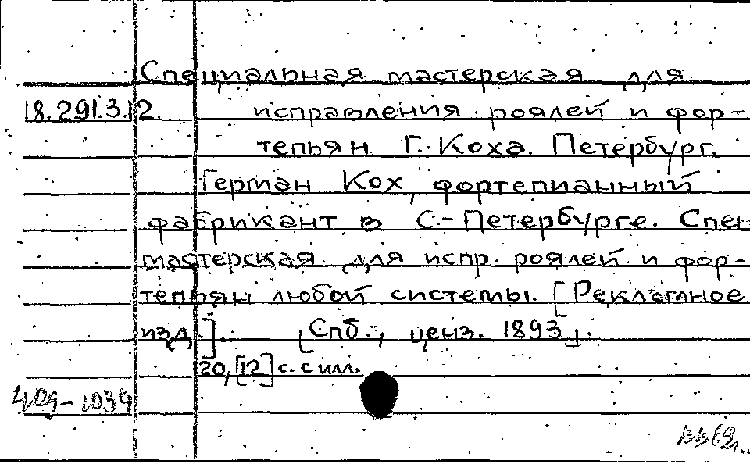 Специальная мастерская для
18.291.3.12 исправления роялей и фор-
тепьян Г. Коха. Петербург.
Герман Кох, фортепианный
фабрикант в С.-Петербурге. Спец.
мастерская для испр. роялей и фор-
тепьян любой системы. [Рекламное
изд.]. [Спб., ценз. 1893].
20, [12] с. с илл.
409-1039